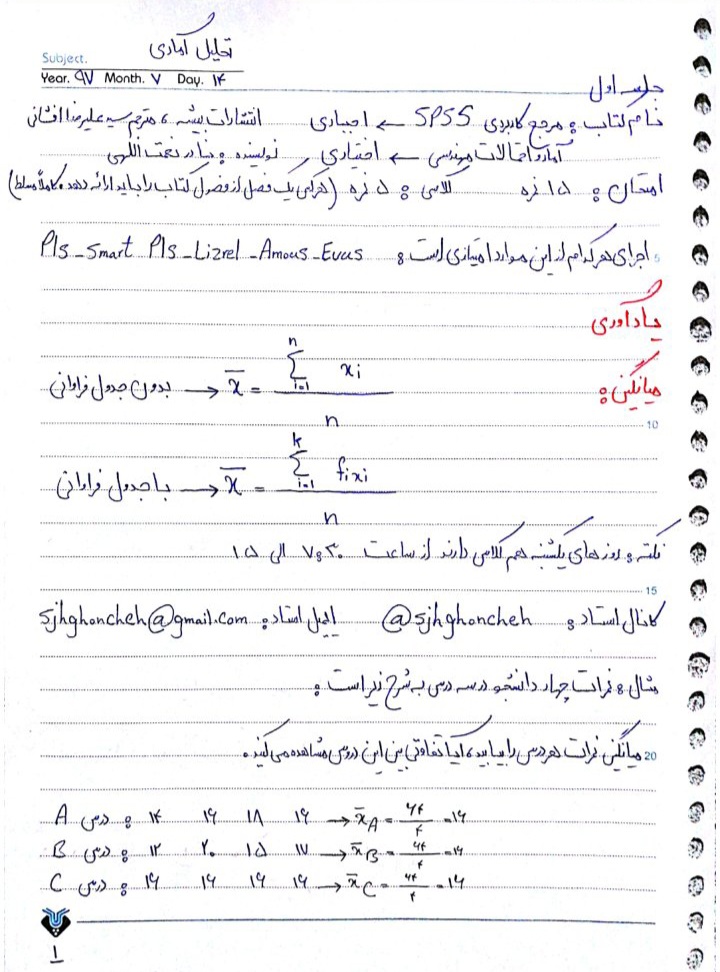 تحلیل آماری
Subject.
Year. ۹۷ Month. ۷ Day. ۱۴
جلسه اول
نام کتاب : مرجع کاربردی SPSS ← اجباری انتشارات بیشه ، مترجم سید علیرضا افشانی
آمار و احتمالات مهندسی ← اختیاری , نویسنده : نادر نعمت اللهی
امتحان : ۱۵ نمره کلاسی : ۵ نمره (هرکس یک فصل از فصول کتاب را باید ارائه دهد. کاملاً مسلط)
5 اجرای هر کدام از این موارد امتیازی است : Pls_Smart Pls_Lizrel_Amous_Evus
یادآوری
میانگین :
بدون جدول فراوانی → x̄ = Σ_{i=1}^{n} xi / n
10
با جدول فراوانی → x̄ = Σ_{i=1}^{k} fixi / n
نکته : روزهای یکشنبه هم کلاس دارند از ساعت ۷:۳۰ الی ۱۵
15
کانال استاد : @sjhghoncheh ایمیل استاد : sjhghoncheh@gmail.com
مثال : نمرات چهار دانشجو در سه درس به شرح زیر است :
20 میانگین نمرات هر درس را بیابید ، آیا تفاوتی بین این دروس مشاهده می کنید .
A درس : ۱۴ ۱۶ ۱۸ ۱۶ → x̄A = ۶۴/۴ = ۱۶
B درس : ۱۲ ۲۰ ۱۵ ۱۷ → x̄B = ۶۴/۴ = ۱۶
C درس : ۱۶ ۱۶ ۱۶ ۱۶ → x̄C = ۶۴/۴ = ۱۶
۱